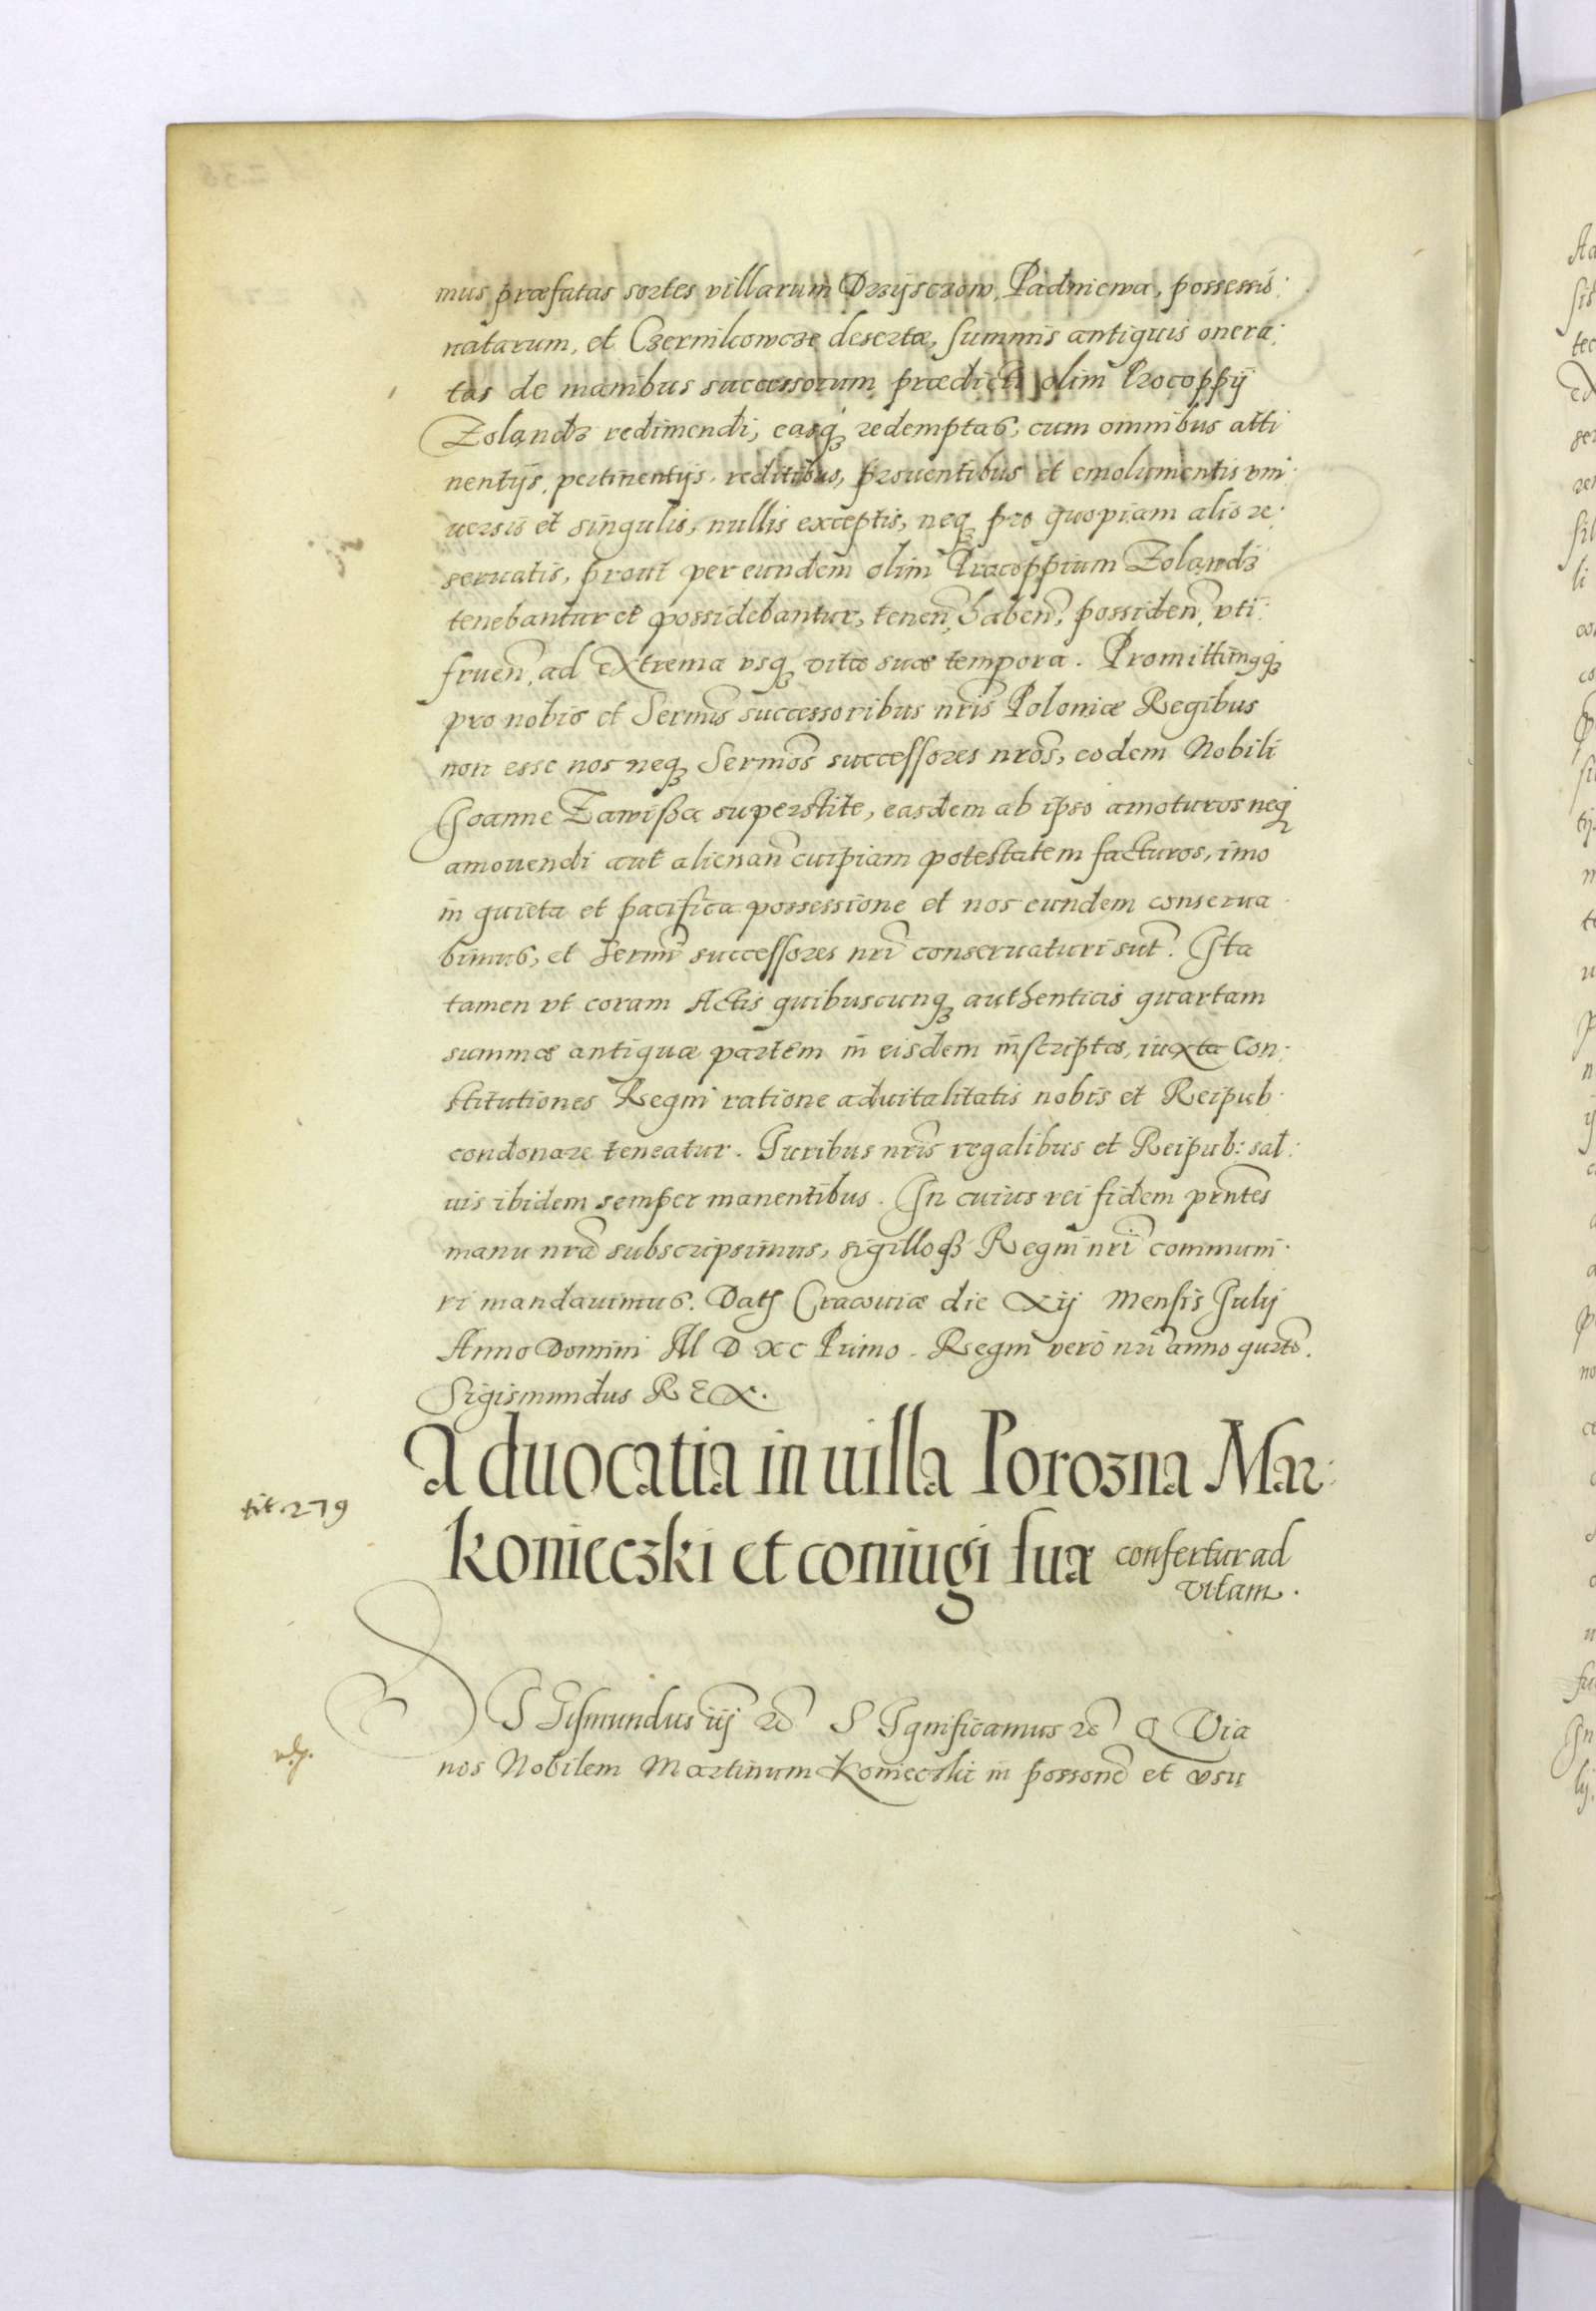 mus præfatas sortes villarum Drzyszczow, Padniewa, possessio:
natarum, et Czernikowcze desertæ, summis antiquis onera:
tas de manibus successorum prædicti olim Procoppij
Zolandz redimendi, easq redemptas, cum omnibus atti
nentijs, pertinentijs, reditibus, prouentibus et emolumentis vni:
uersis et singulis, nullis exceptis, neq pro quopiam alio re:
seruatis, prout per eundem olim Procoppium Zolandz
tenebantur et possidebantur, tenen, haben, possiden, vti:
fruen, ad extrema vsq vitæ suæ tempora. Promittimusq
pro nobis et Sermis successoribus nris Poloniæ Regibus
non esse nos neq Sermos successores nros, eodem Nobili
Joanne Zawisza superstite, easdem ab ipso amoturos neq
amouendi aut alienan cuipiam potestatem facturos, imo
in quieta et pacifica possessione et nos eundem conserua
bimus, et Sermi successores nri conseruaturi sut. Ita
tamen vt coram Actis quibuscunq authenticis quartam
summæ antiquæ partem in eisdem inscriptæ, iuxta Con:
stitutiones Regni ratione aduitalitatis nobis et Reipub:
condonare teneatur. Juribus nris regalibus et Reipub: sal:
uis ibidem semper manentibus. In cuius rei fidem prntes
manu nra subscripsimus, sigilloq Regni nri communi:
ri mandauimus. Dat Cracouiæ die Xij Mensis Julij
Anno Domini M D XC Primo. Regni vero nri anno qurto.
Sigismundus REX.
Aduocatia in uilla Porozna Mar:
tit. 279
konieczki et coniugi suæ confertur ad
vitam.
SIGismundus iij &c SIGnificamus &c QVia
nos Nobilem Martinum Konieczki in possone et vsu